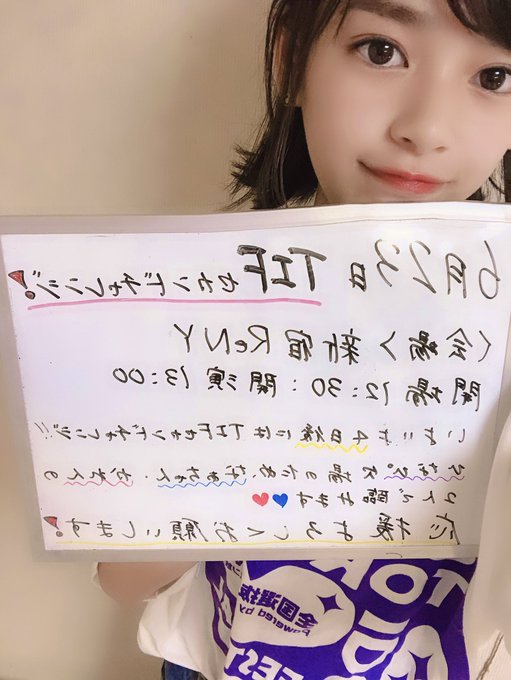 6月23日 TIF セカンドチャレンジ!
〈会場〉新宿ReNY
開場 12:30 : 開演 13:00
いよいよ 4日後には TIFセカンドチャレンジ!!
ひなぴ。欠場のため、なぁちゃん・かれんの
2人で臨みます
応援よろしくお願いします!
全国選抜
Powered by
TOK
ID
FEST